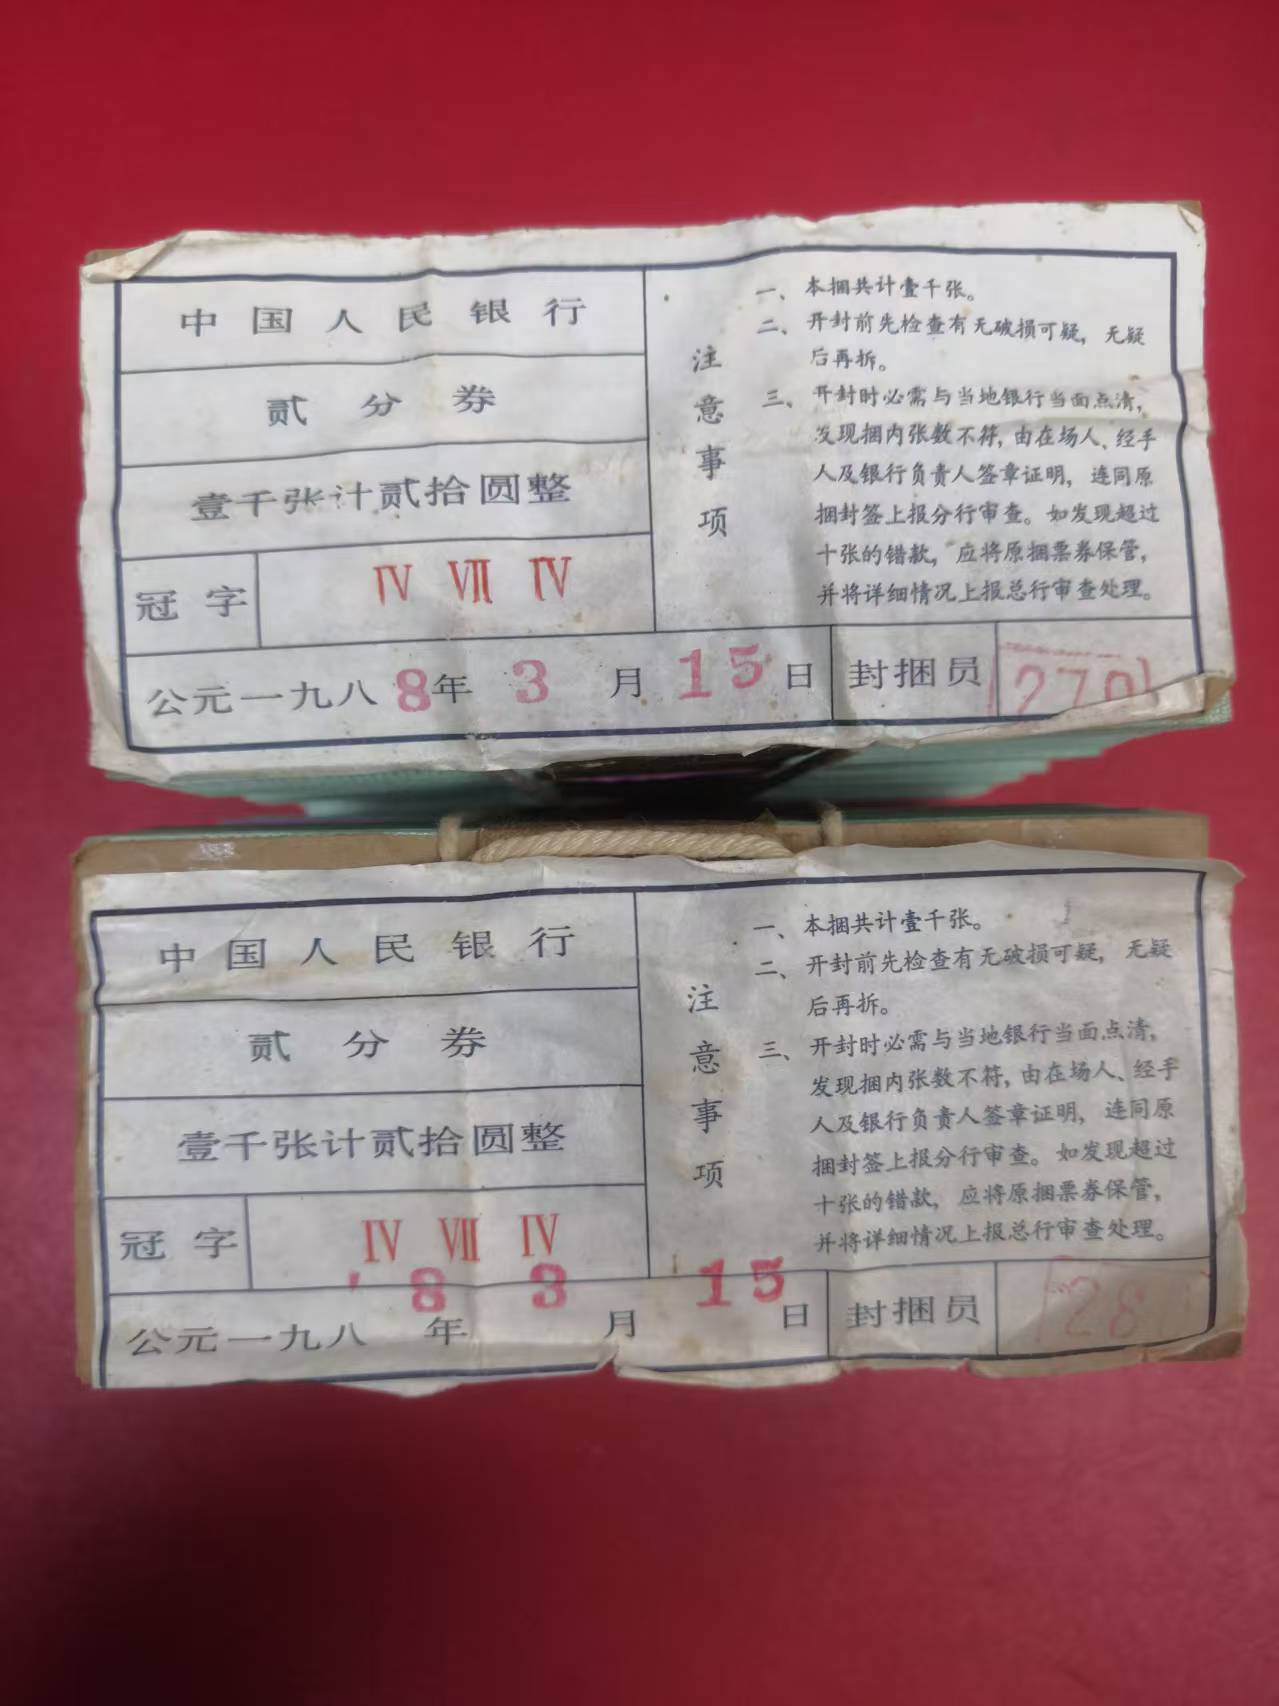 中国人民银行
贰分券
壹千张计贰拾圆整
冠字 IV VII IV
公元一九八8年3月15日
注意事项
一、本捆共计壹千张。
二、开封前先检查有无破损可疑，无疑
后再拆。
三、开封时必需与当地银行当面点清，
发现捆内张数不符，由在场人、经手
人及银行负责人签章证明，连同原
捆封签上报分行审查。如发现超过
十张的错款，应将原捆票券保管，
并将详细情况上报总行审查处理。
封捆员 270
中国人民银行
贰分券
壹千张计贰拾圆整
冠字 IV VII IV
公元一九八8年3月15日
注意事项
一、本捆共计壹千张。
二、开封前先检查有无破损可疑，无疑
后再拆。
三、开封时必需与当地银行当面点清，
发现捆内张数不符，由在场人、经手
人及银行负责人签章证明，连同原
捆封签上报分行审查。如发现超过
十张的错款，应将原捆票券保管，
并将详细情况上报总行审查处理。
封捆员